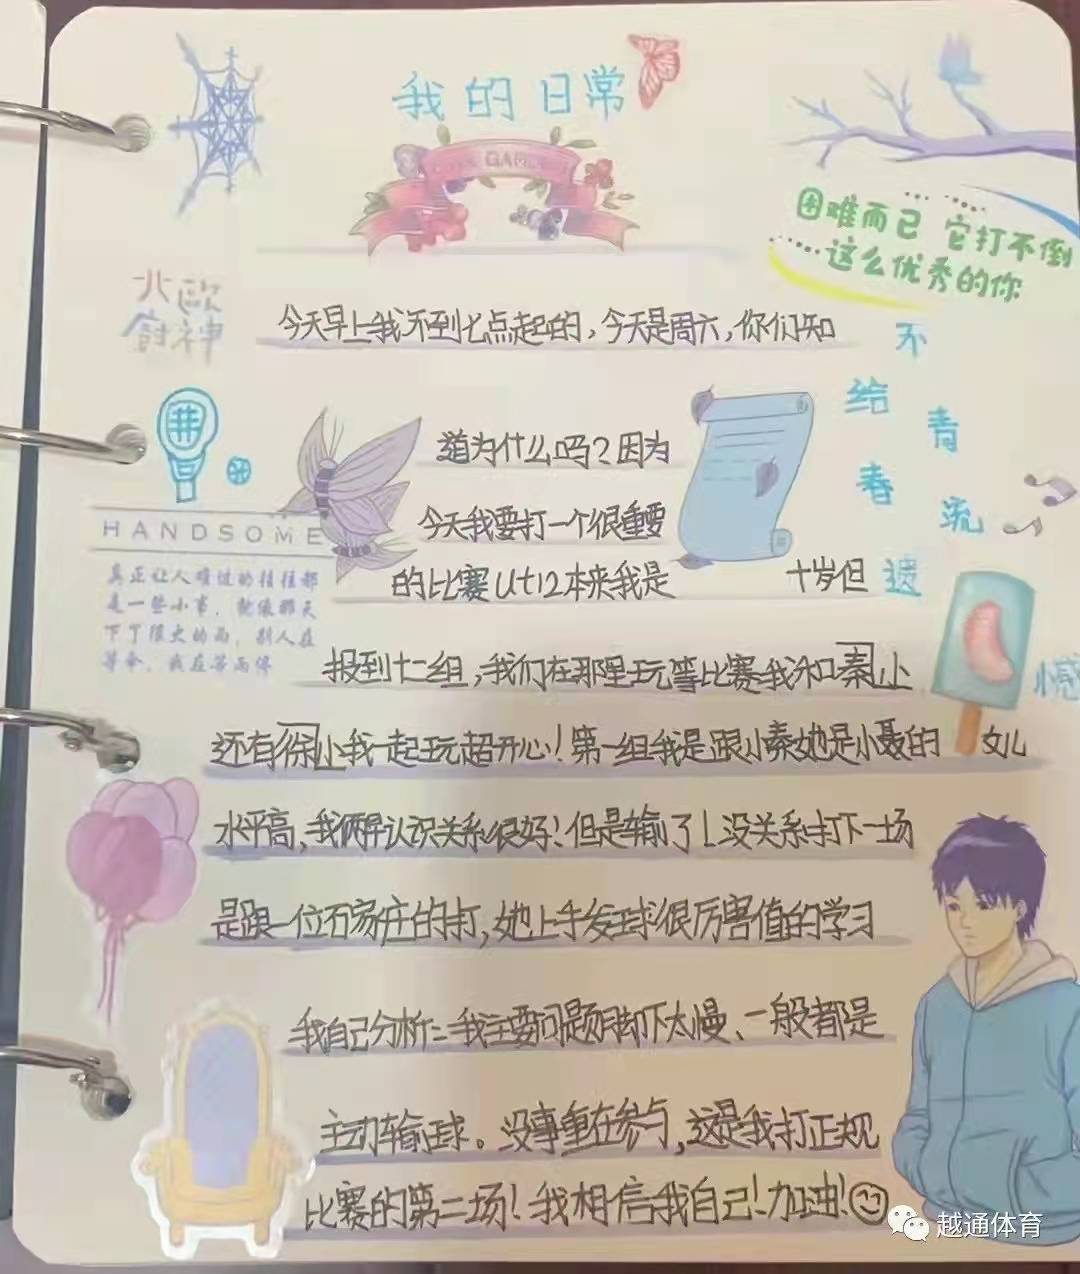 我的日常
GAM
困难而已 它打不倒
这么优秀的你
北欧
厨神
今天早上我不到七点起的,今天是周六,你们知
不
给
青
春
流
遗
道为什么吗?因为
今天我要打一个很重要
的比赛Ut12本来我是 十岁但
HANDSOME
真正让人难过的往往都
是一些小事,就像那天
下了很大的雨,别人在
等伞,我在等雨停
报到十二组,我们在那里玩等比赛我和秦小
小感
还有徐小我一起玩超开心!第一组我是跟小秦她是小聂的 女儿
水平高,我俩早认识关系很好!但是输了!没关系打下一场
是跟一位石家庄的打,她上手发球很厉害值的学习
我自己分析:我主要问题脚下太慢、一般都是
主动输球。没事重在参与,这是我打正规
比赛的第二场!我相信我自己!加油!
越通体育